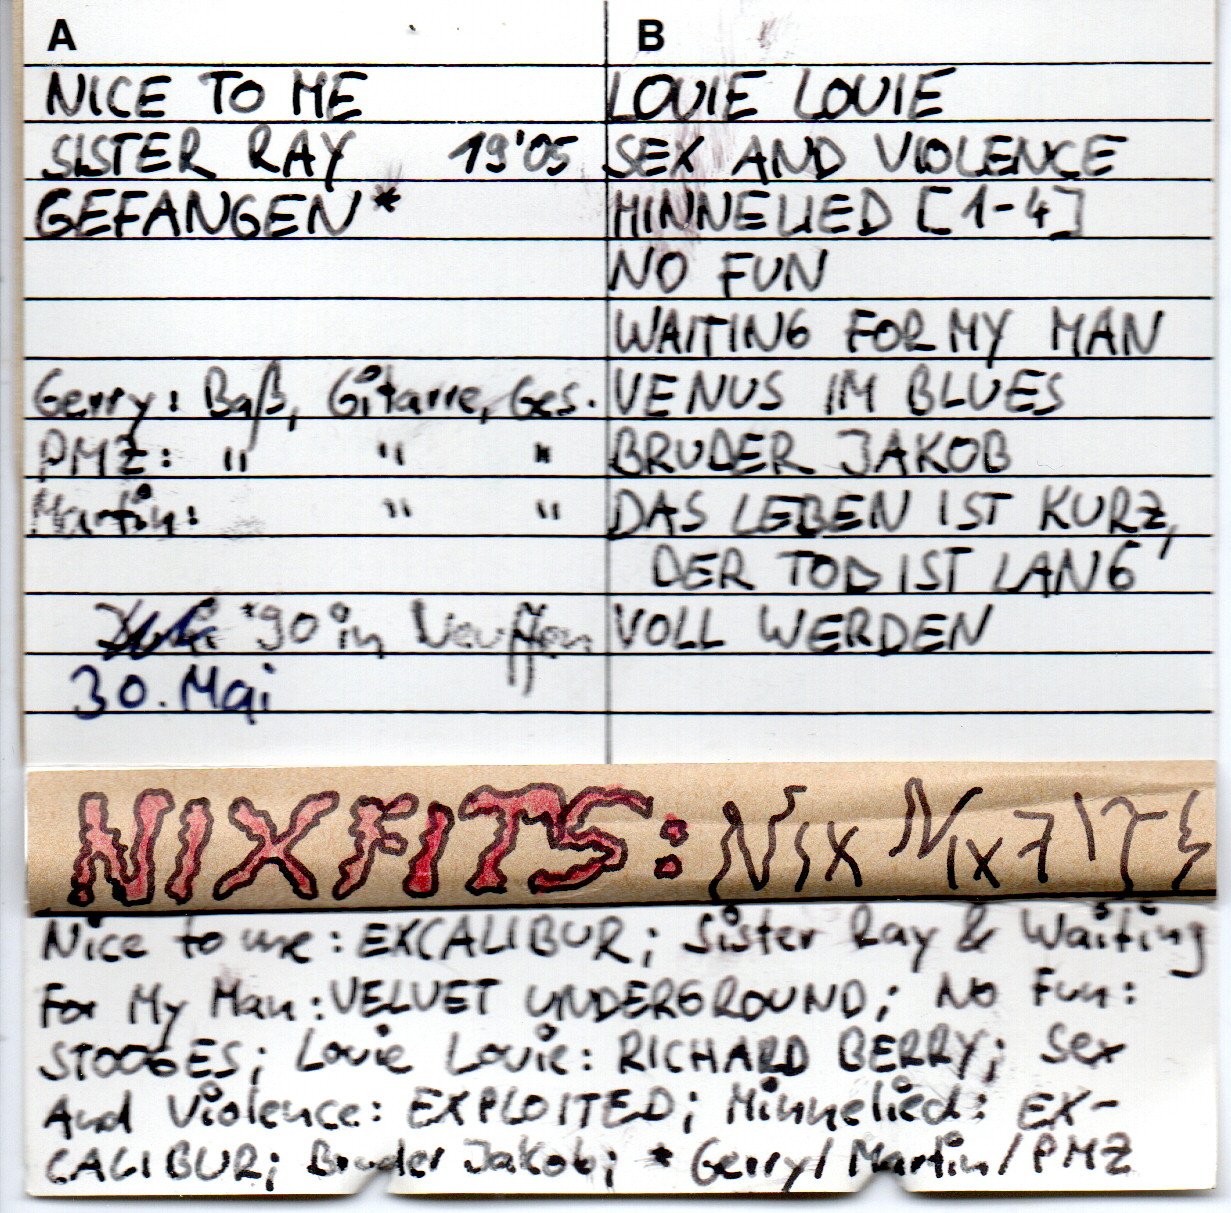 A
NICE TO ME
SISTER RAY 19'05
GEFANGEN*
Gerry: Baß, Gitarre, Ges.
PMZ: " " "
Martin: " "
'90 in Neuffen
30. Mai
B
LOUIE LOUIE
SEX AND VIOLENCE
MINNELIED [1-4]
NO FUN
WAITING FOR MY MAN
VENUS IM BLUES
BRUDER JAKOB
DAS LEBEN IST KURZ,
DER TOD IST LANG
VOLL WERDEN
NIXFITS: NIX NIXFITS
Nice to me: EXCALIBUR; Sister Ray & Waiting
For My Man: VELVET UNDERGROUND; No Fun:
STOOGES; Louie Louie: RICHARD BERRY; Sex
And Violence: EXPLOITED; Minnelied: EX-
CALIBUR; Bruder Jakob; * Gerry/Martin/PMZ